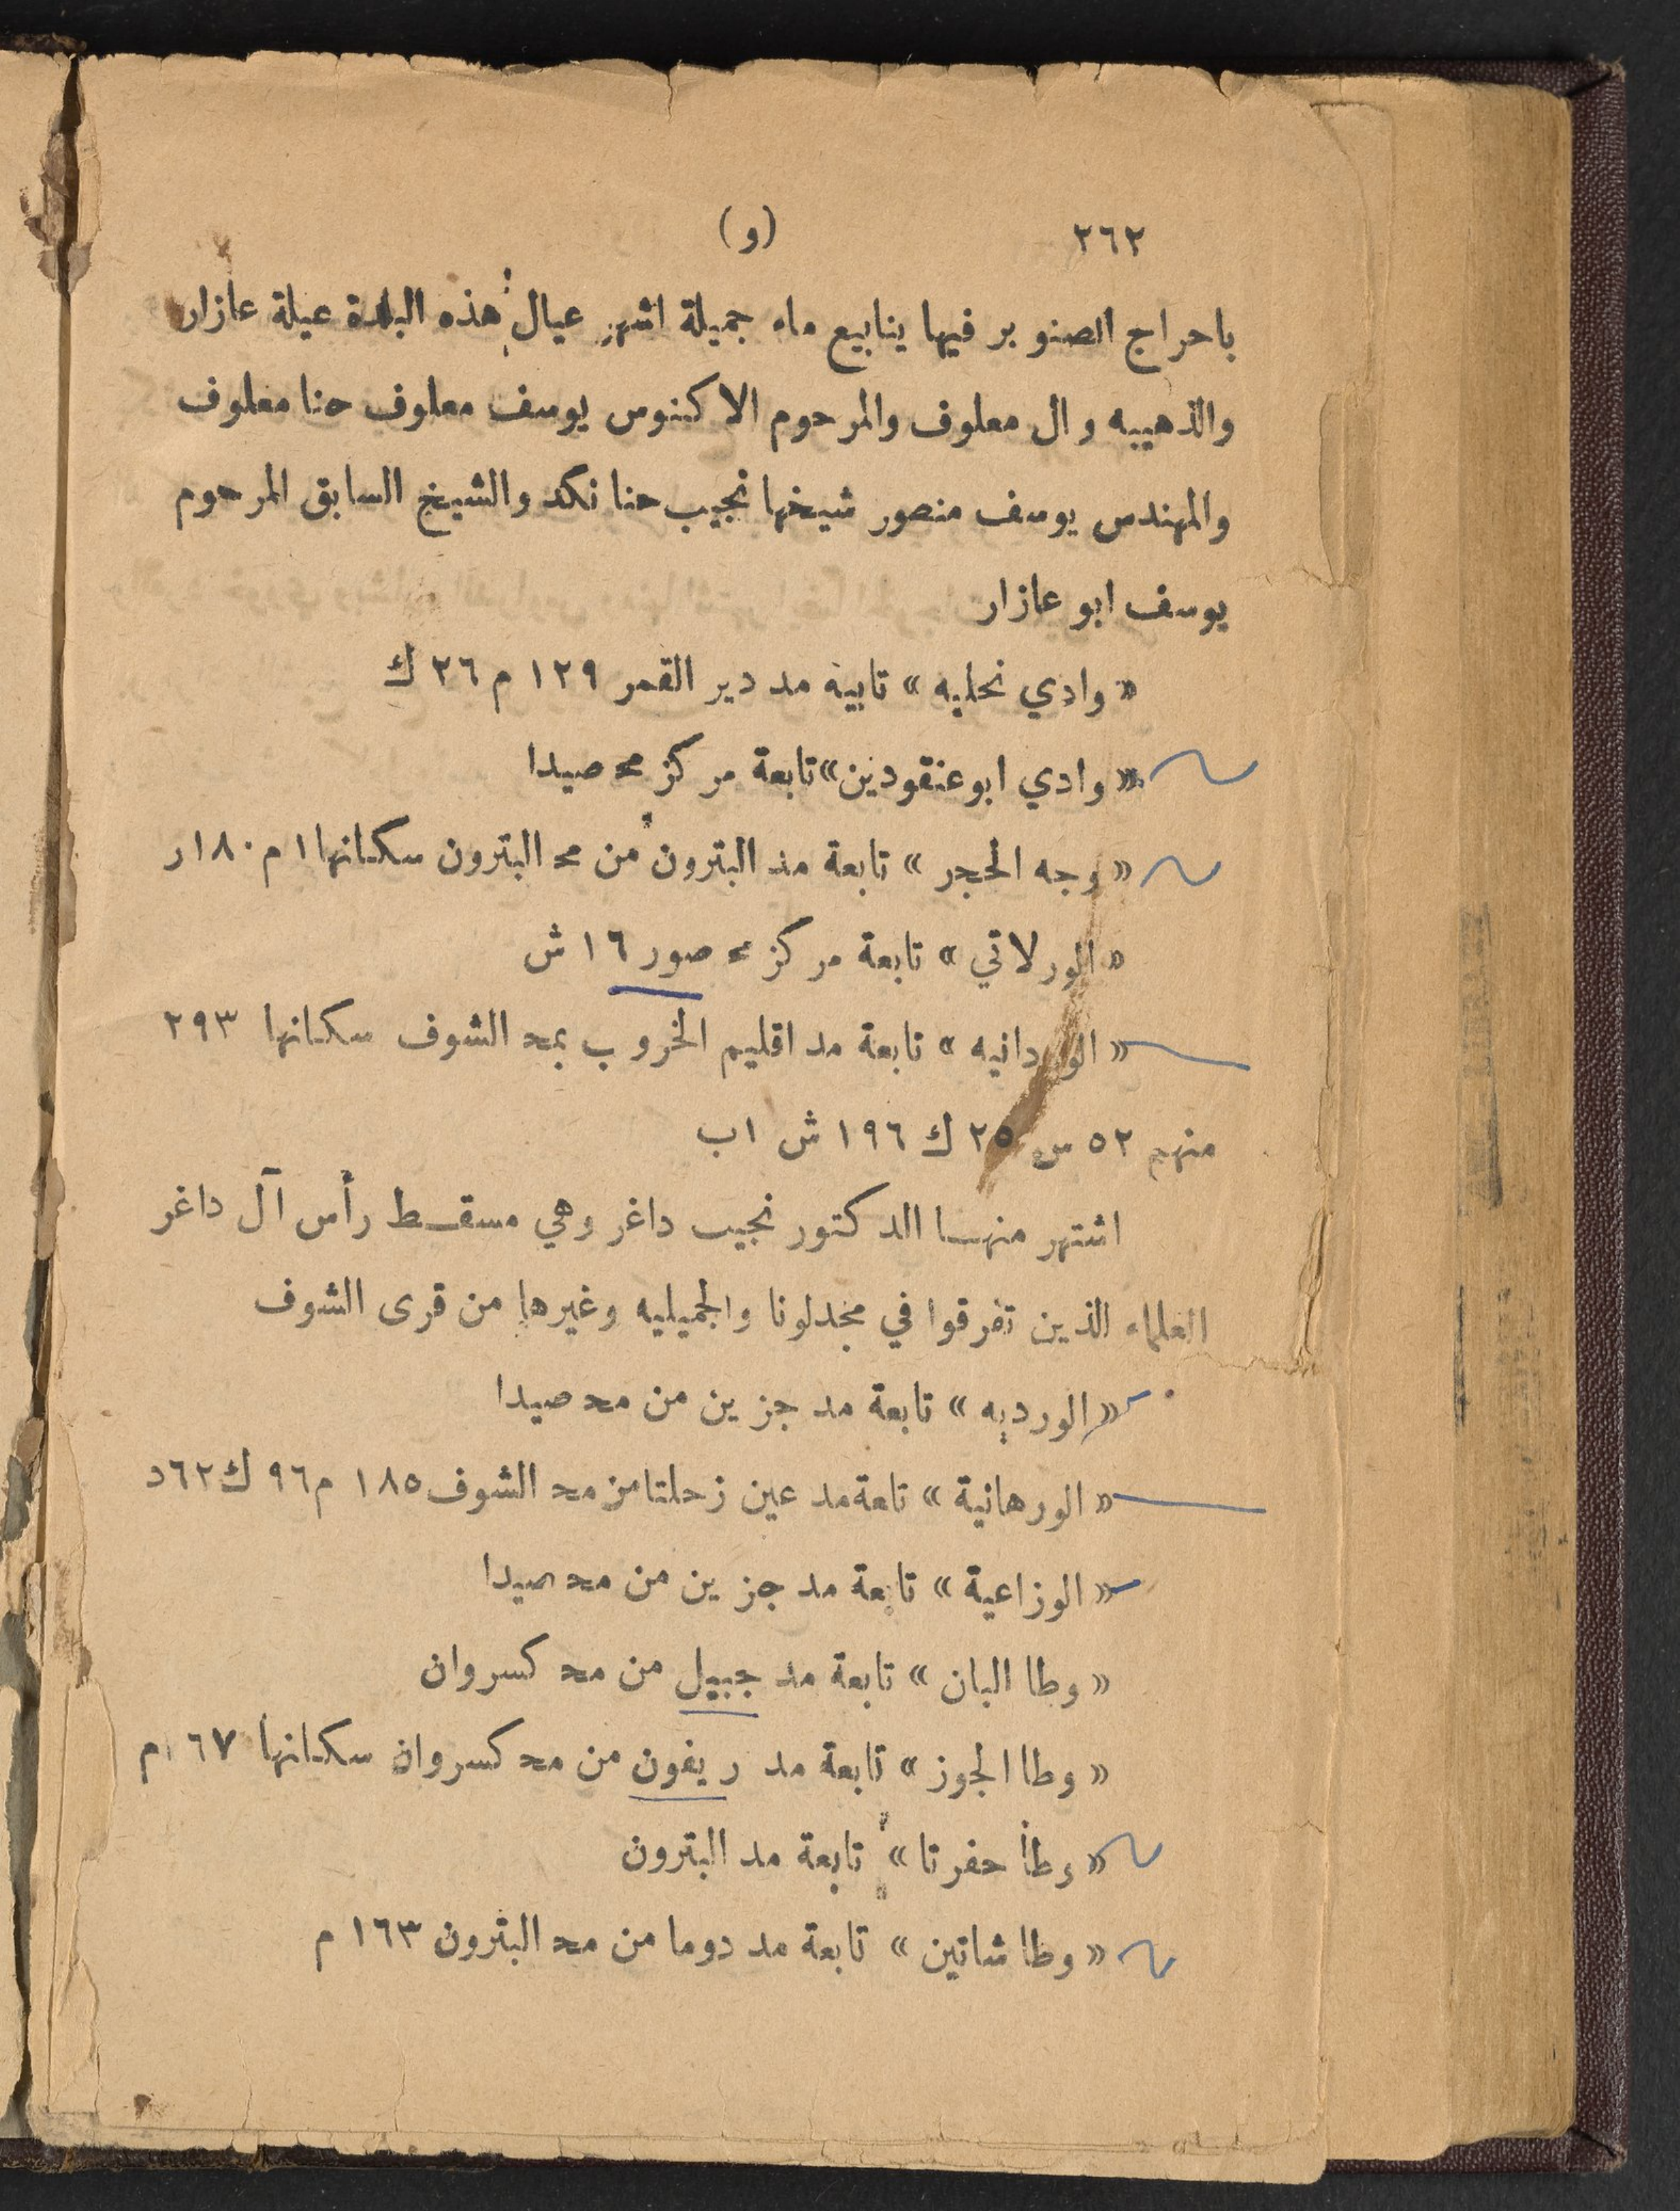 ٢٦٢ (و)
باحراج الصنوبر فيها ينابيع ماء جميلة اشهر عيال هذه البلدة عيلة عازار
والذهيبه وال معلوف والمرحوم الاكنوس يوسف معلوف حنا معلوف
والمهندس يوسف منصور شيخها نجيب حنا نكد والشيخ السابق المرحوم
يوسف ابو عازار
« وادي نحليه » تابية مد دير القمر ١٢٩ م ٢٦ ك
« وادي ابو عنقودين » تابعة مركز مح صيدا
« وجه الحجر » تابعة مد البترون من مح البترون سكانها ١ م ١٨٠ ر
« الورلاتي » تابعة مركز مح صور ١٦ ش
« الوردانيه » تابعة مد اقليم الخروب بمح الشوف سكانها ٢٩٣
منهم ٥٢ س ٢٥ ك ١٩٦ ش ١ ب
اشتهر منها الدكتور نجيب داغر وهي مسقط رأس آل داغر
العلماء الذين تفرقوا في مجدلونا والجميليه وغيرها من قرى الشوف
« الورديه » تابعة مد جزين من مح صيدا
« الورهانية » تابعة مد عين زحلتا من مح الشوف ١٨٥ م ٩٦ ك ٦٢ د
« الوزاعية » تابعة مد جزين من مح صيدا
« وطا البان » تابعة مد جبيل من مح كسروان
« وطا الجوز » تابعة مد ريفون من مح كسروان سكانها ١٦٧ م
« وطا حفرتا » تابعة مد البترون
« وطا شاتين » تابعة مد دوما من مح البترون ١٦٣ م